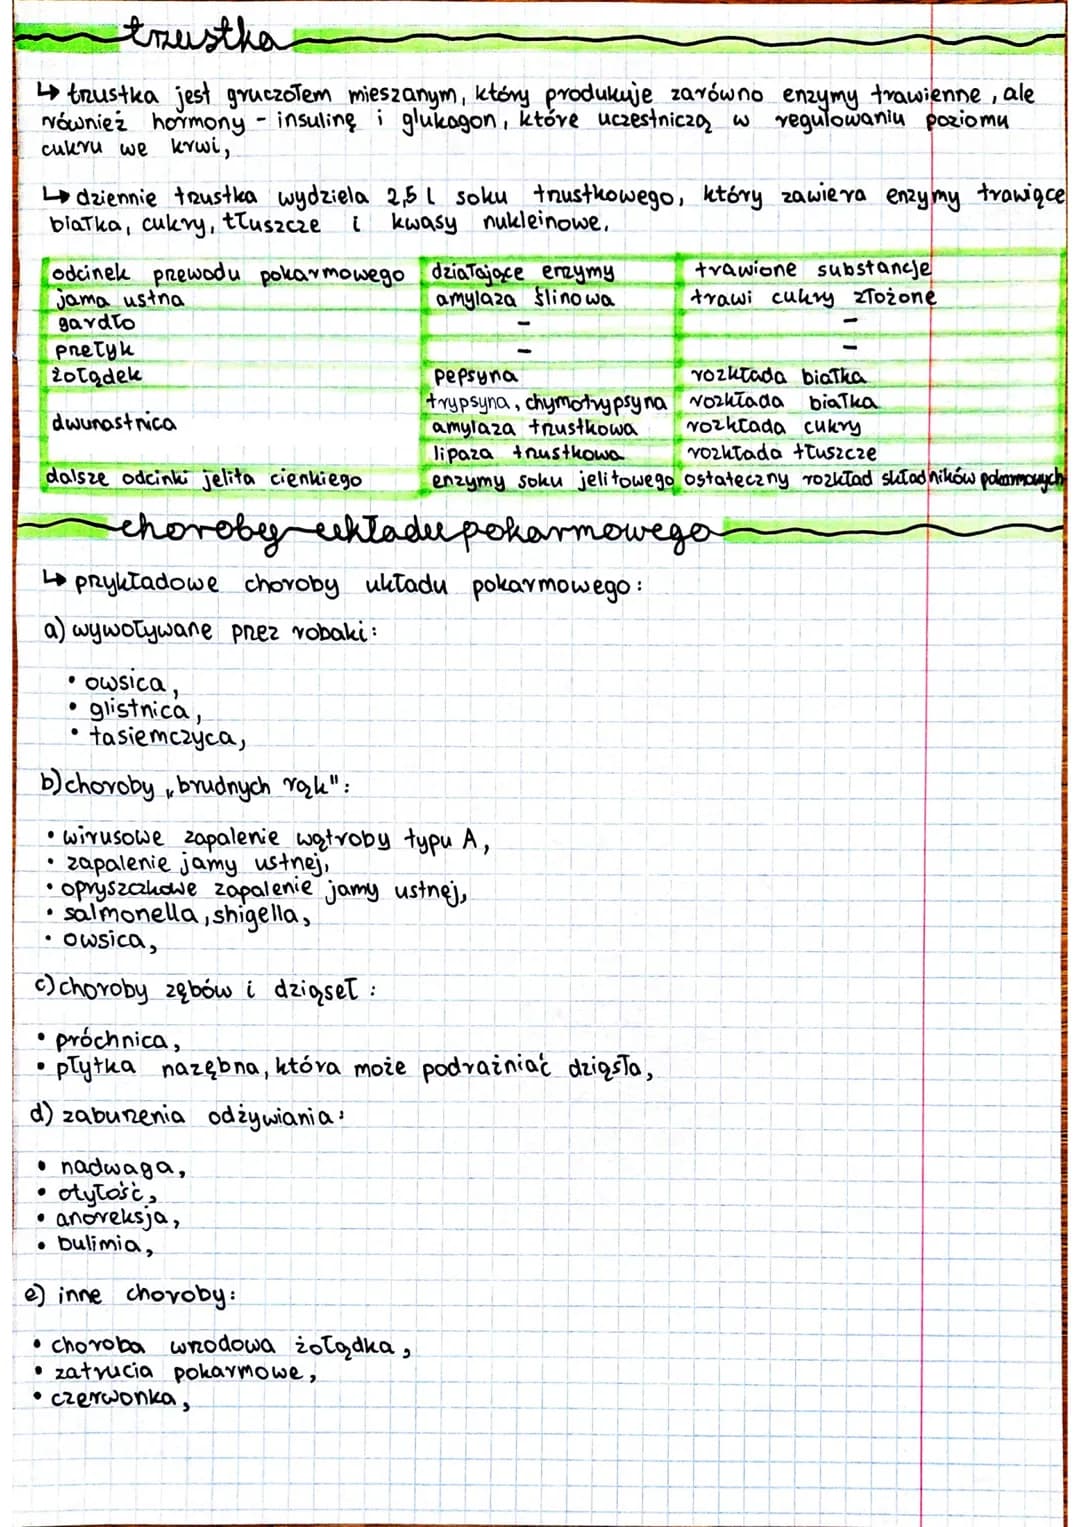 trzustka
↳ trzustka jest gruczołem mieszanym, który produkuje zarówno enzymy trawienne, ale
również hormony - insulinę i glukagon, które uczestniczą w regulowaniu poziomu
cukru we krwi,
↳ dziennie trzustka wydziela 2,5 l soku trzustkowego, który zawiera enzymy trawiące
białka, cukry, tłuszcze i kwasy nukleinowe,
odcinek przewodu pokarmowego działające enzymy trawione substancje
jama ustna amylaza ślinowa trawi cukry złożone
gardło - -
przełyk - -
żołądek pepsyna rozkłada białka
trypsyna, chymotrypsyna rozkłada białka
dwunastnica amylaza trzustkowa rozkłada cukry
lipaza trzustkowa rozkłada tłuszcze
dalsze odcinki jelita cienkiego enzymy soku jelitowego ostateczny rozkład składników pokarmowych
choroby układu pokarmowego
↳ przykładowe choroby układu pokarmowego:
a) wywoływane przez robaki:
• owsica,
• glistnica,
• tasiemczyca,
b) choroby „brudnych rąk":
• wirusowe zapalenie wątroby typu A,
• zapalenie jamy ustnej,
• opryszczkowe zapalenie jamy ustnej,
• salmonella, shigella,
• owsica,
c) choroby zębów i dziąseł:
• próchnica,
• płytka nazębna, która może podrażniać dziąsła,
d) zaburzenia odżywiania:
• nadwaga,
• otyłość,
• anoreksja,
• bulimia,
e) inne choroby:
• choroba wrzodowa żołądka,
• zatrucia pokarmowe,
• czerwonka,